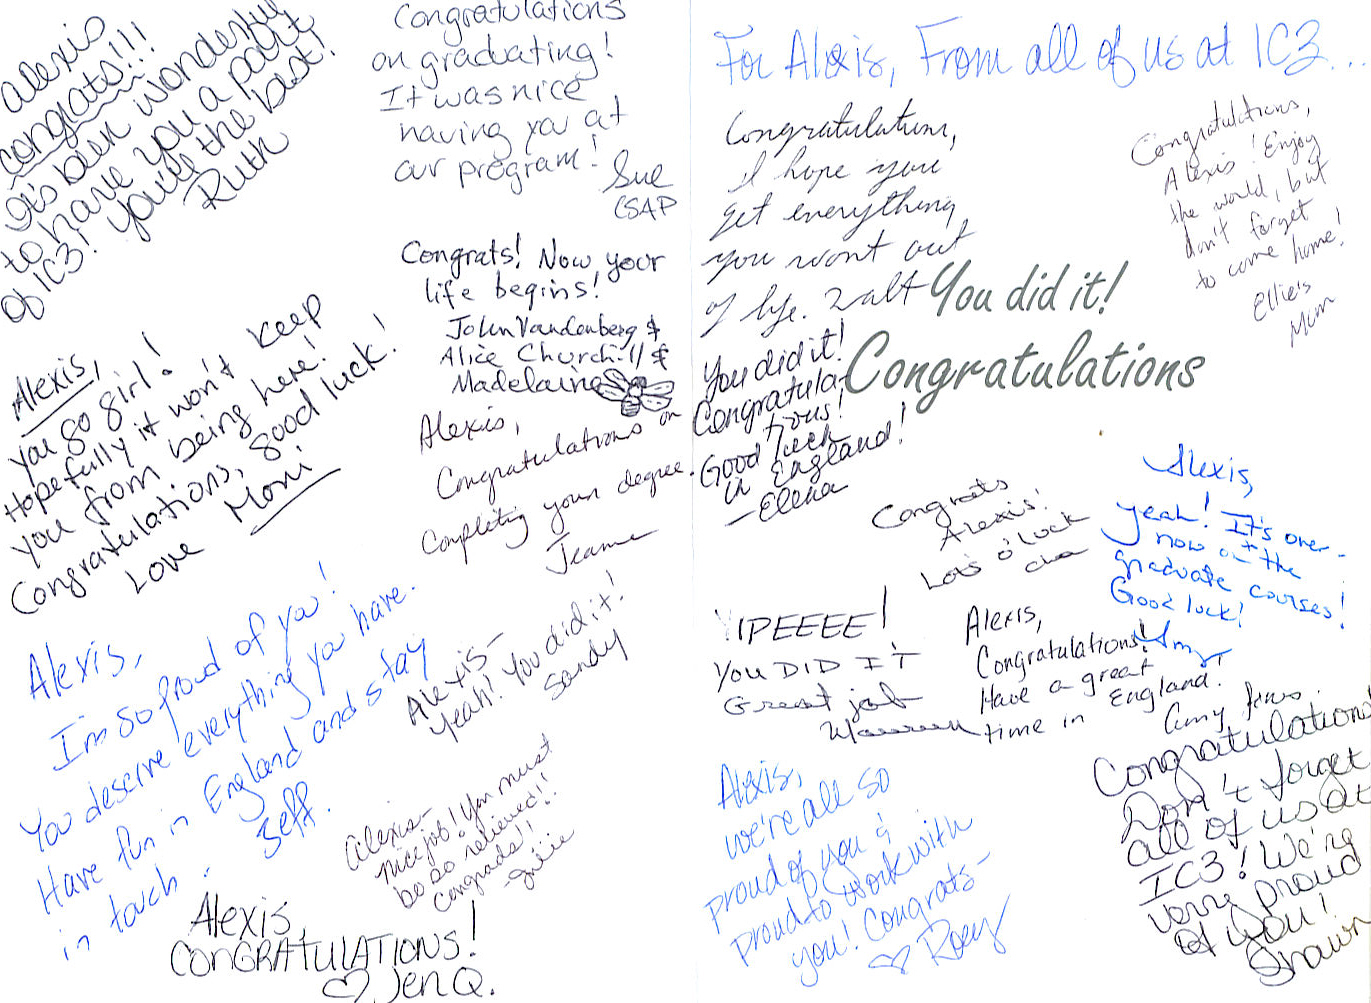 Alexis
congrats!!!
It's been wonderful
to have you a part
of IC3! You're the best!
Ruth
Congratulations
on graduating!
It was nice
having you at
our program!
Sue
CSAP
Congrats! Now your
life begins!
John Vandenberg &
Alice Churchill &
Madelaine
Alexis,
you go girl!
Hopefully it won't keep
you from being here!
Congratulations, good luck!
Love Moni
Alexis,
Congratulations on
Completing your degree.
Jeanne
Alexis,
I'm so proud of you!
You deserve everything you have.
Have fun in England and stay
in touch.
Jeff.
Alexis-
Yeah! You did it!
Sandy
Alexis-
Nice job! You must
be so relieved!!
Congrads!!
-Julie
Alexis,
CONGRATULATIONS!
Jen Q.
For Alexis, From all of us at IC3...
Congratulations,
I hope you
get everything
you want out
of life. Walt
Congratulations,
Alexis! Enjoy
the world, but
don't forget
to come home!
Ellie's
Mum
You did it!
Congratulations
You did it!
Congratula-
tions!
Good luck
in England!
-Elena
Congrats
Alexis!
Lots o' luck
Alexis,
Yeah! It's over-
now on to the
graduate courses!
Good luck!
Amy
YIPEEEE!
YOU DID IT
Great job
Warren
Alexis,
Congratulations!
Have a great
time in England.
Amy
Alexis,
we're all so
proud of you &
proud to work with
you! Congrats-
Roey
Congratulations
Don't forget
all of us at
IC3! We're
very proud
of you!
Shawn